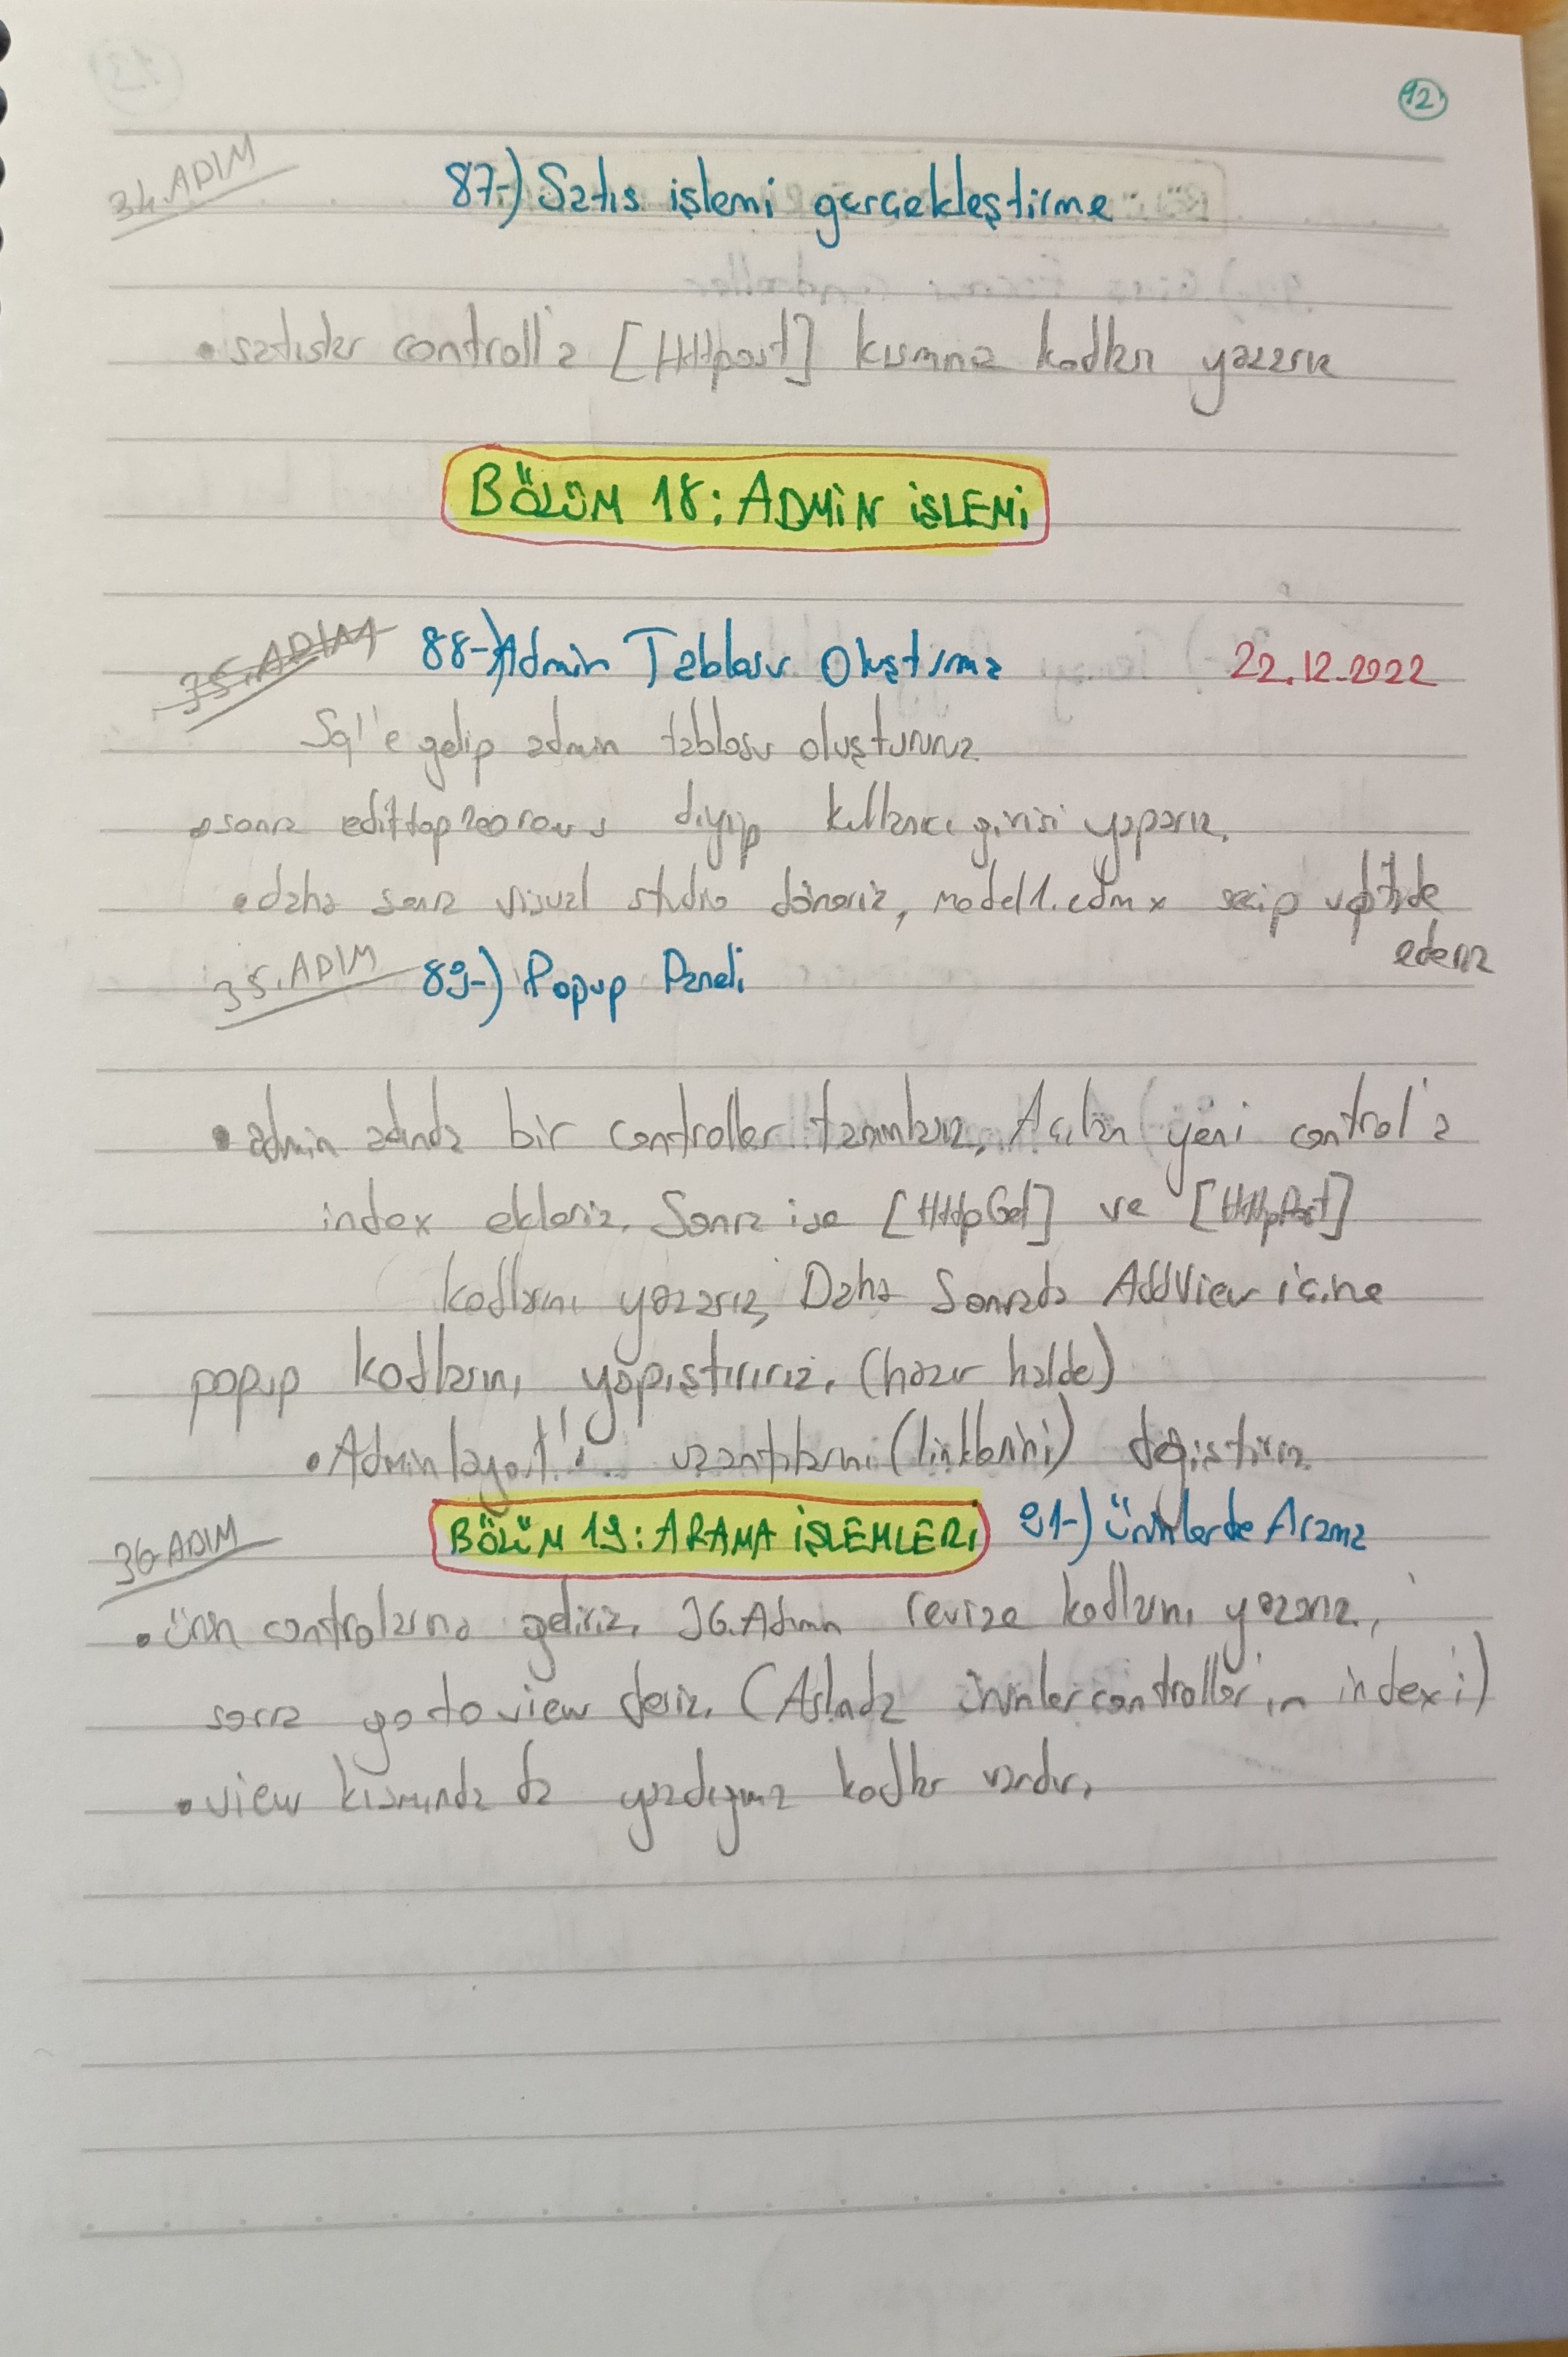 12
34.ADIM
87-) Satıs işlemi gerçekleştirme
• satıslar controll'a [Httppost] kısmına kodları yazarız
BÖLÜM 18: ADMİN İŞLEMİ
35.ADIM 88-) Admin Tablosu Oluşturma 22.12.2022
Sql'e gelip admin tablosu oluştururuz.
• sonra edittop200rows diyip kullanıcı girisi yaparız.
• daha sonra visual studio döneriz, model1.edmx seçip update
ederiz
35.ADIM 89-) Popup Paneli
• admin adında bir controller tanımlarız. Açılan yeni control'a
index ekleriz. Sonra ise [HttpGet] ve [HttpPost]
kodlarını yazarız, Daha Sonrada AddView içine
popup kodlarını yapıştırırız. (hazır halde)
• Adminlayout'ı uzantılarını (linklerini) değiştiririz.
36.ADIM BÖLÜM 19: ARAMA İŞLEMLERİ 91-) Ürünlerde Arama
• ürün controlarına geliriz. 36.Adımın revize kodlarını yazarız,
sonra gotoview deriz. (Aslında ürünlercontroller'in index'i)
• view kısmında da yazdığımız kodlar vardır.